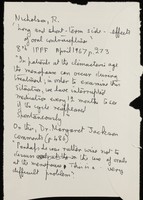 Nicholson, R.
"Long and short-term side-effects
of oral contraceptives"
8th IPPF April 1967, p 273
"In patients at the climacteric age
the menopause can occur during
treatment, in order to examine this
situation, we have interrupted
medication every 12 months to see
if the cycle reappeared
spontaneously"
On this, Dr. Margaret Jackson
comments (p 286)
"Perhaps we were rather wise not to
discuss the use of orals
at the menopause. This is a very
difficult problem"